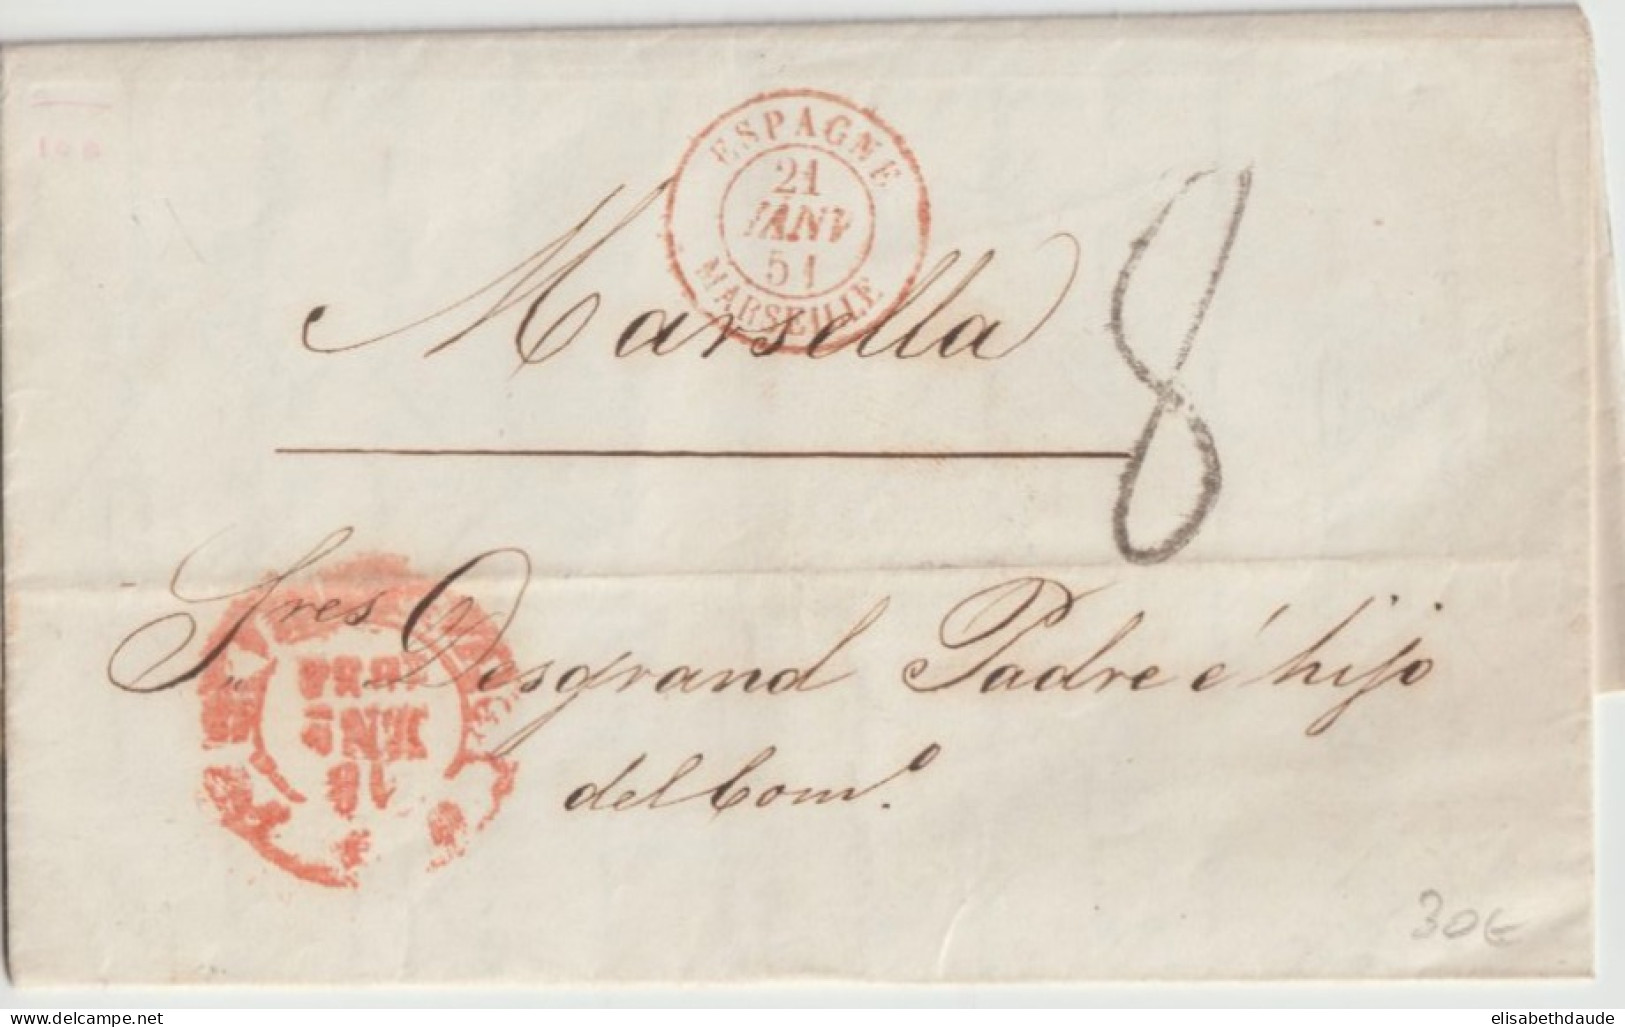 ESPAGNE
21
JANV
51
MARSEILLE
8
Marsella
Sres Desgrand Padre é hijo
del Com.o
30€
www.delcampe.net
elisabethdaude